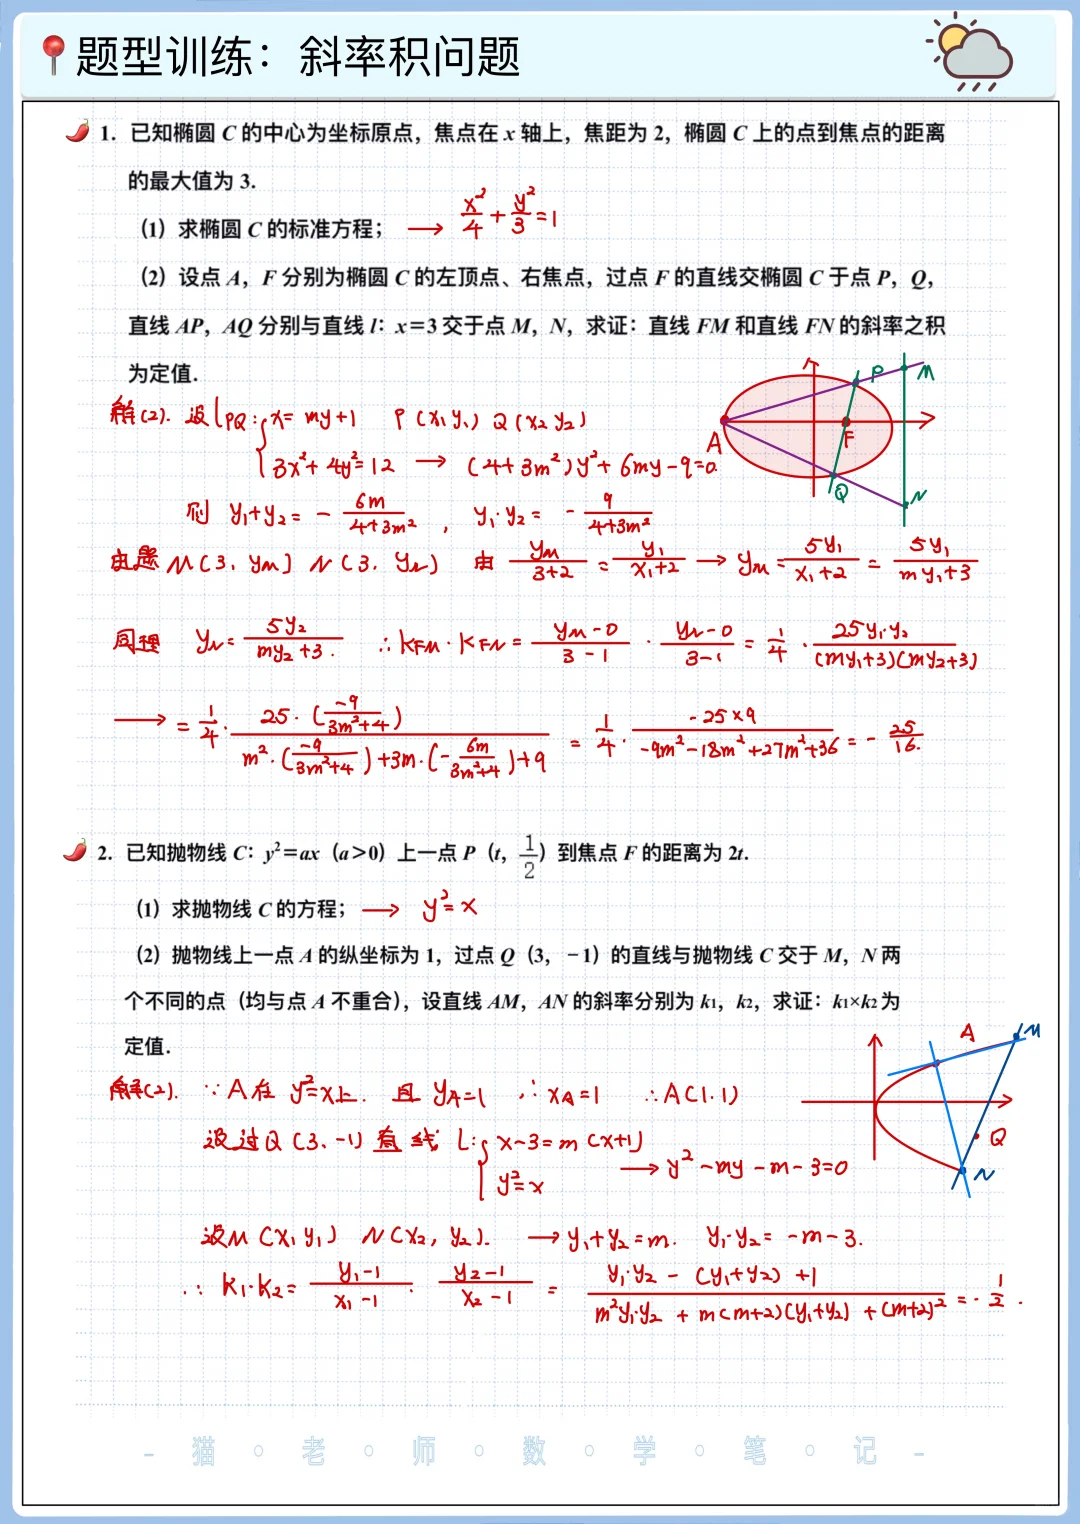 题型训练：斜率积问题
1. 已知椭圆 C 的中心为坐标原点，焦点在 x 轴上，焦距为 2，椭圆 C 上的点到焦点的距离
的最大值为 3.
（1）求椭圆 C 的标准方程； → x²/4 + y²/3 = 1
（2）设点 A，F 分别为椭圆 C 的左顶点、右焦点，过点 F 的直线交椭圆 C 于点 P，Q，
直线 AP，AQ 分别与直线 l：x＝3 交于点 M，N，求证：直线 FM 和直线 FN 的斜率之积
为定值.
A F P Q M N
解(2). 设 l PQ: { x = my+1 P(x₁ y₁) Q(x₂ y₂)
3x²+4y²=12 → (4+3m²)y²+6my-9=0
则 y₁+y₂ = - 6m/(4+3m²) , y₁·y₂ = - 9/(4+3m²)
由题 M(3, yM) N(3, yN) 由 yM/(3+2) = y₁/(x₁+2) → yM = 5y₁/(x₁+2) = 5y₁/(my₁+3)
同理 yN = 5y₂/(my₂+3). ∴ kFM · kFN = (yM-0)/(3-1) · (yN-0)/(3-1) = 1/4 · 25y₁·y₂/((my₁+3)(my₂+3))
→ = 1/4 · 25·(-9/(3m²+4))/(m²·(-9/(3m²+4))+3m·(-6m/(3m²+4))+9) = 1/4 · -25×9/(-9m²-18m²+27m²+36) = - 25/16.
2. 已知抛物线 C：y²＝ax（a＞0）上一点 P（t，1/2）到焦点 F 的距离为 2t.
（1）求抛物线 C 的方程； → y²=x
（2）抛物线上一点 A 的纵坐标为 1，过点 Q（3，－1）的直线与抛物线 C 交于 M，N 两
个不同的点（均与点 A 不重合），设直线 AM，AN 的斜率分别为 k₁，k₂，求证：k₁×k₂ 为
定值.
A M Q N
解(2). ∵ A在 y²=x上. 且 yA=1 ∴ xA=1 ∴ A(1.1)
设过Q(3,-1)直线 L: { x-3=m(x+1)
y²=x → y²-my-m-3=0
设M(x₁ y₁) N(x₂, y₂). → y₁+y₂=m. y₁·y₂=-m-3.
∴ k₁·k₂ = (y₁-1)/(x₁-1) · (y₂-1)/(x₂-1) = (y₁·y₂-(y₁+y₂)+1)/(m²y₁·y₂+m(m+2)(y₁+y₂)+(m+2)²) = - 1/2.
- 猫 · 老 · 师 · 数 · 学 · 笔 · 记 -